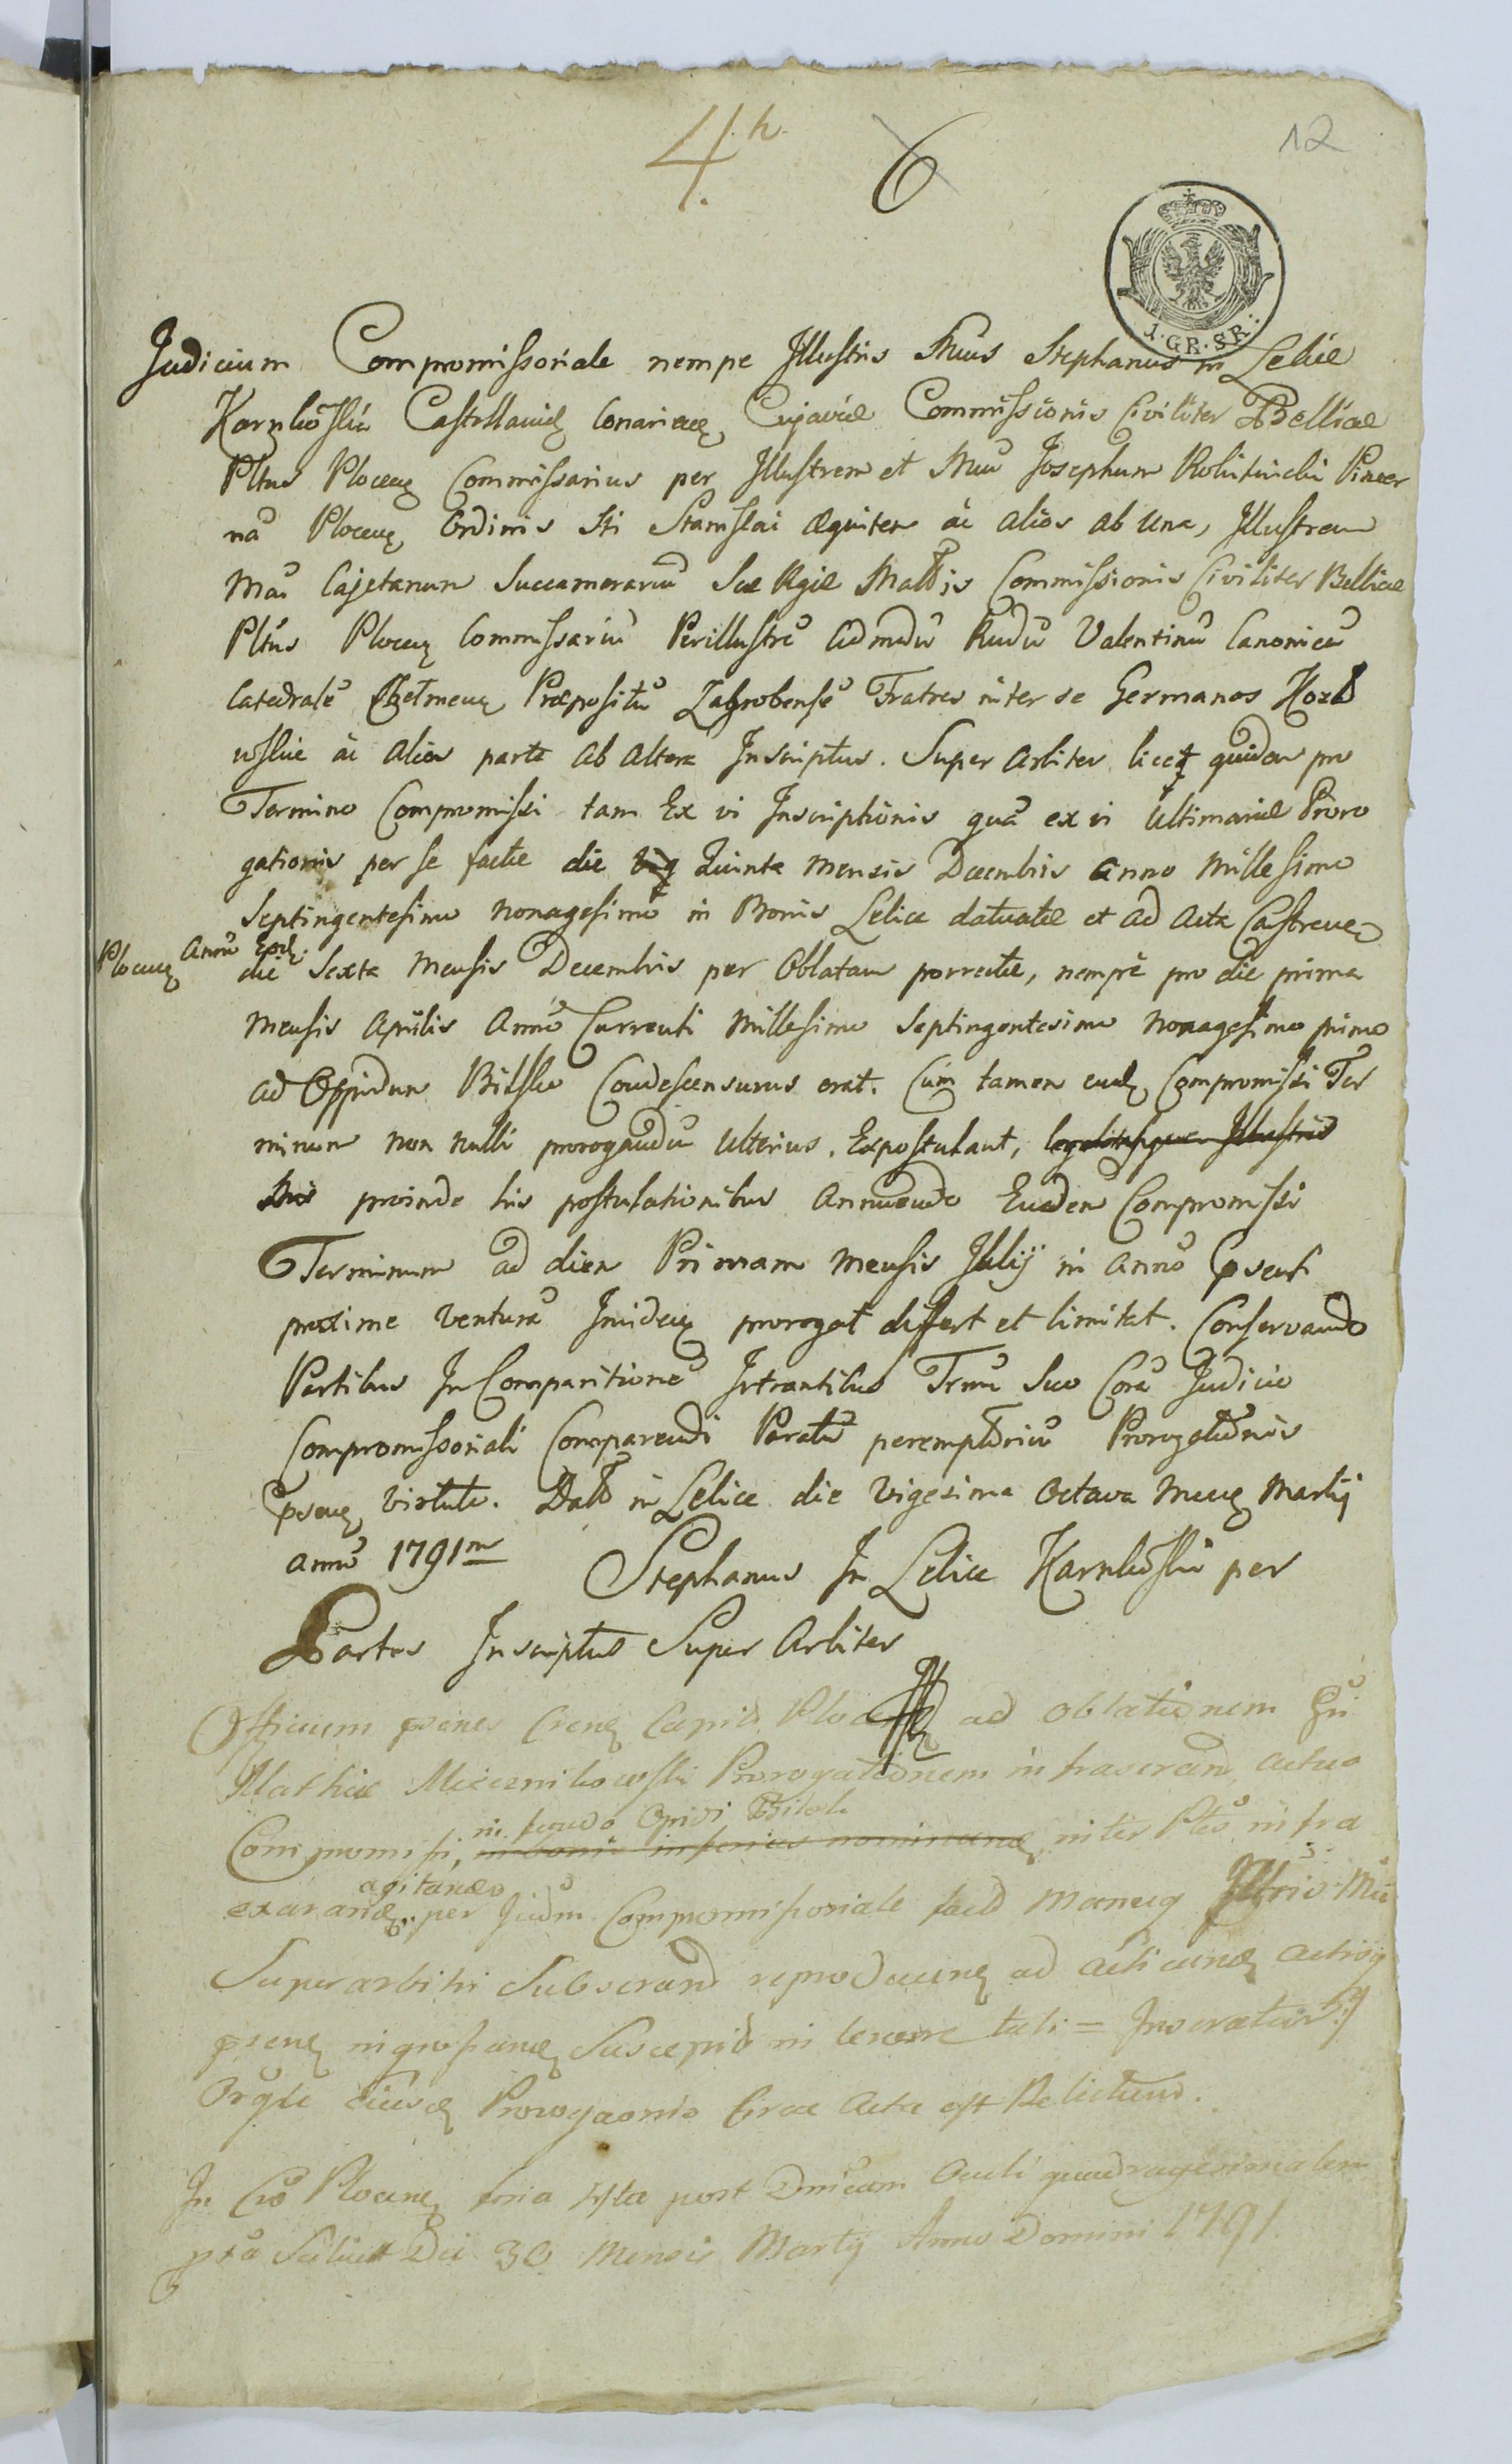 4.
6
12
1. GR. SR.
Judicium Compromissoriale nempe Illustris Mcus Stephanus in Lelice
Karnkowski Castellanid Conariens Cujaviæ Commissionis Civiliter Bellicæ
Pltus Plocens Commissarius per Illustrem et Mcum Josephum Rokitnicki Pincer
nã Plocens Ordinis Sti Stanislai Equitem ãc alios ab una, Illustrem
Mcũ Cajetanum Succamerariũ Sæ Rgiæ Mattis Commissionis Civiliter Bellicæ
Pltus Plocens Commissariũ Perillustrẽ Admdũ Rndũ Valentinũ Canonicũ
Catedralẽ Chełmens Præpositũ Zagrobensẽ Fratres inter se Germanos Kozło
wskie ãc alios parte ab altera Inscriptus. Super Arbiter licet quidem pro
Termino Compromissi tam Ex vi Inscriptionis quã ex vi Ultimariæ Proro
gationis per se factæ die Quinta Mensis Decembris Anno Millesimo
Septingentesimo Nonagesimo in Bonis Lelice datuatæ et ad Acta Castrens
Plocens Anno Eod.
die Sexta Mensis Decembris per Oblatam porrectæ, nempè pro die prima
Mensis Aprilis Anno Currenti Millesimo Septingentesimo Nonagesimo primo
ad Oppidum Bilsko Condescensurus erat. Cùm tamen eund Compromissi Ter
minum non nulli prorogandũ ulterius Expostulant,
proinde his postulationibus Annuendo Eundem Compromissi
Terminum ad diem Primam Mensis Julij in Anno psenti
proxime venturã Ibidem prorogat differt et limitat. Conservando
Partibus In Comparitionẽ Intrantibus Trmũ Suo Corã Judicio
Compromissoriali Comparendi Paratũ peremptoriũ Prorogationis
psens virtute. Datt in Lelice die Vigesima Octava Mens Martij
Anno 1791mo
Stephanus In Lelice Karnkowski per
Partes Inscriptus Super Arbiter
Officium psens Castr Capit Plocens ad oblationem
Mathiæ Miecznikowski Prorogationem infrascrand actus
in fundo Opidi Bilsk
Compromissi, in bonis inferius nominand inter Ptes infra
agitand
exarand per Judm Compromissoriale fact Manuq Illtris Mci
Superarbitri Subscrand reproducens ad acticand actisq
psens ingrossand Suscepit in tenore tali = Inseratur
Orgle ejusd Prorogaonis Circa Acta est Relictum.
In Cro Plocens feria 4ta post Dnicam Oculi quadragesimalem
pxa Scilicet Die 30 Mensis Martij Anno Domini 1791.